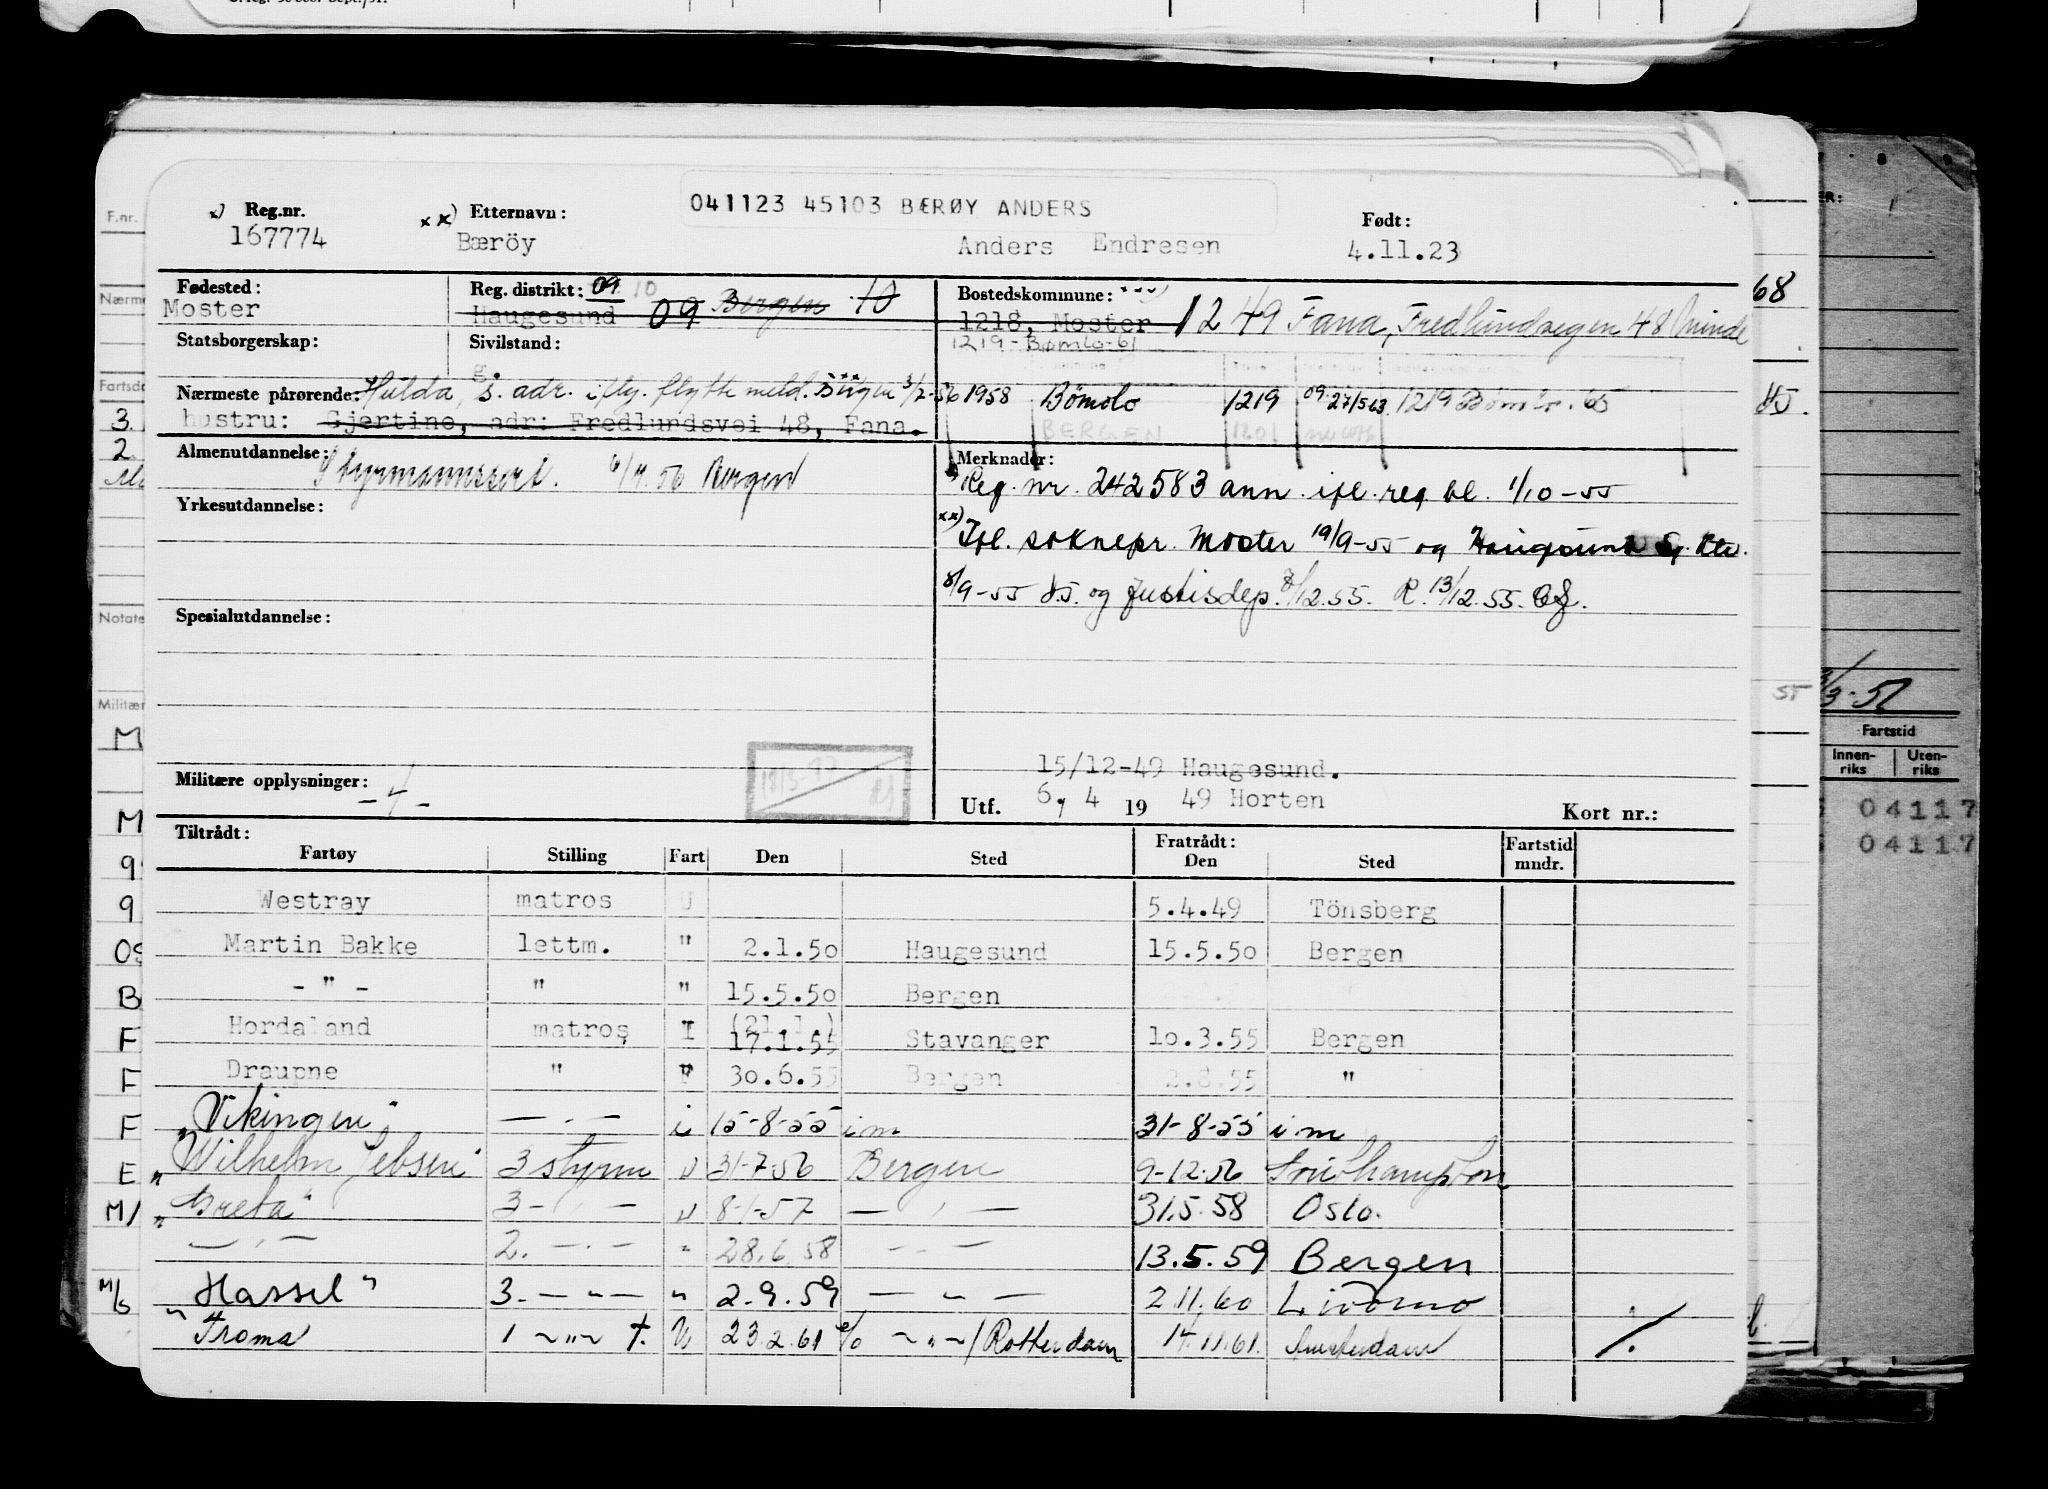 041123 45103 BÆRØY ANDERS
x) Reg.nr. xx) Etternavn: Født:
167774 Bæröy Anders Endresen 4.11.23
Fødested: Reg. distrikt: 09 10 Bostedskommune:
Moster Haugesund 09 Bergen 10 1218, Moster 1249 Fana, Fredlundvegen 48 Minde
Statsborgerskap: Sivilstand: 1219 - Bømlo - 61
g.
Nærmeste pårørende: Hulda, s. adr. iflg. flytte meld. Bergen 3/7-56 1958 Bømlo 1219 09 27/5 63 1219 Bømlo. 65
hustru: Gjertine, adr: Fredlundsvei 48, Fana. BERGEN 1201
Almenutdannelse: Styrmannssert. 6/4.56 Bergen Merknader:
x) Reg. nr. 242583 ann. ifl. reg bl. 1/10-55
Yrkesutdannelse:
xx) Ifl. soknepr. Moster 19/9-55 og Haugesund
8/9-55 og Justisdep. 7/12.55. R. 13/12.55.
Spesialutdannelse:
15/12-49 Haugesund.
Militære opplysninger: Utf. 6, 4 19 49 Horten Kort nr.:
Tiltrådt: Fratrådt:
Fartøy Stilling Fart Den Sted Den Sted Fartstid mndr.
Westray matros U 5.4.49 Tönsberg
Martin Bakke lettm. " 2.1.50 Haugesund 15.5.50 Bergen
- " - " " 15.5.50 Bergen
Hordaland matros I (21.1.) 17.1.55 Stavanger 10.3.55 Bergen
Draupne " F 30.6.55 Bergen 2.8.55 "
"Vikingen" — . — i 15-8-55 i m 31-8-55 i m
"Wilhelm Jebsen" 3 styrm U 31-7-56 Bergen 9-12-56 Southampton
"Greta" 3 - , - U 8-1-57 — , — 31.5.58 Oslo.
— , — 2. — . — " 28.6.58 — . — 13.5.59 Bergen
Hassel" 3. — " — " 2.9.59 — " — 2.11.60 Livorno
"Troma 1 ~ " ~ t. U 23.2.61 ~ " ~ / Rotterdam 14.11.61. Amsterdam
F.nr.
Fartsda
3.
2.
Notate
Militær
M
M
9
B
F
F
F
E
M/
M/S
68
55
3/3-51
Fartstid
Innen-riks Uten-riks
04117
04117